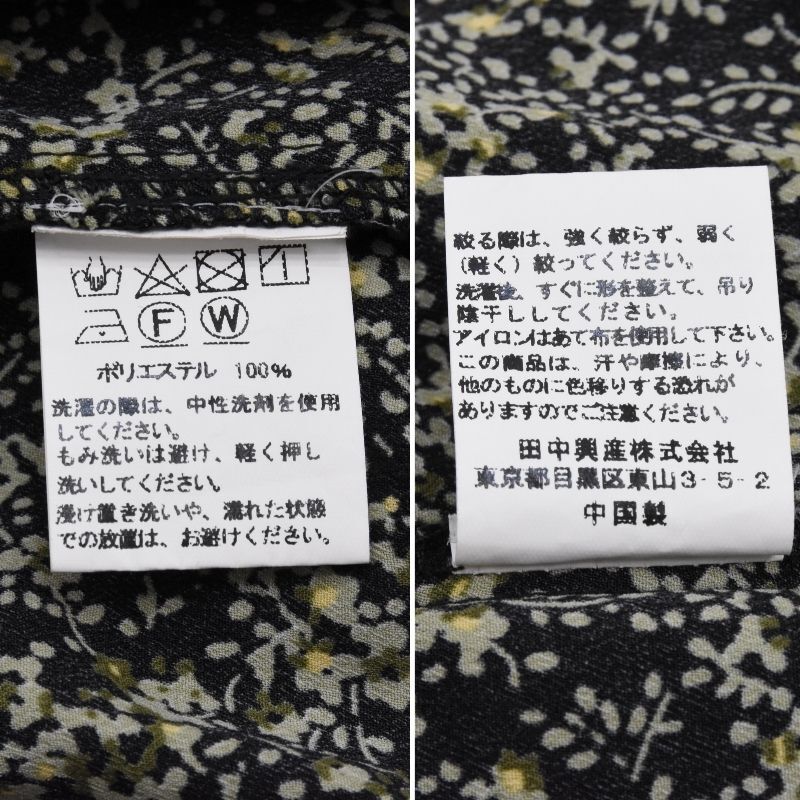 F W
ポリエステル 100%
洗濯の際は、中性洗剤を使用
してください。
もみ洗いは避け、軽く押し
洗いしてください。
浸け置き洗いや、濡れた状態
での放置は、お避けください。
絞る際は、強く絞らず、弱く
（軽く）絞ってください。
洗濯後、すぐに形を整えて、吊り
陰干ししてください。
アイロンはあて布を使用して下さい。
この商品は、汗や摩擦により、
他のものに色移りする恐れが
ありますのでご注意ください。
田中興産株式会社
東京都目黒区東山3-5-2
中国製